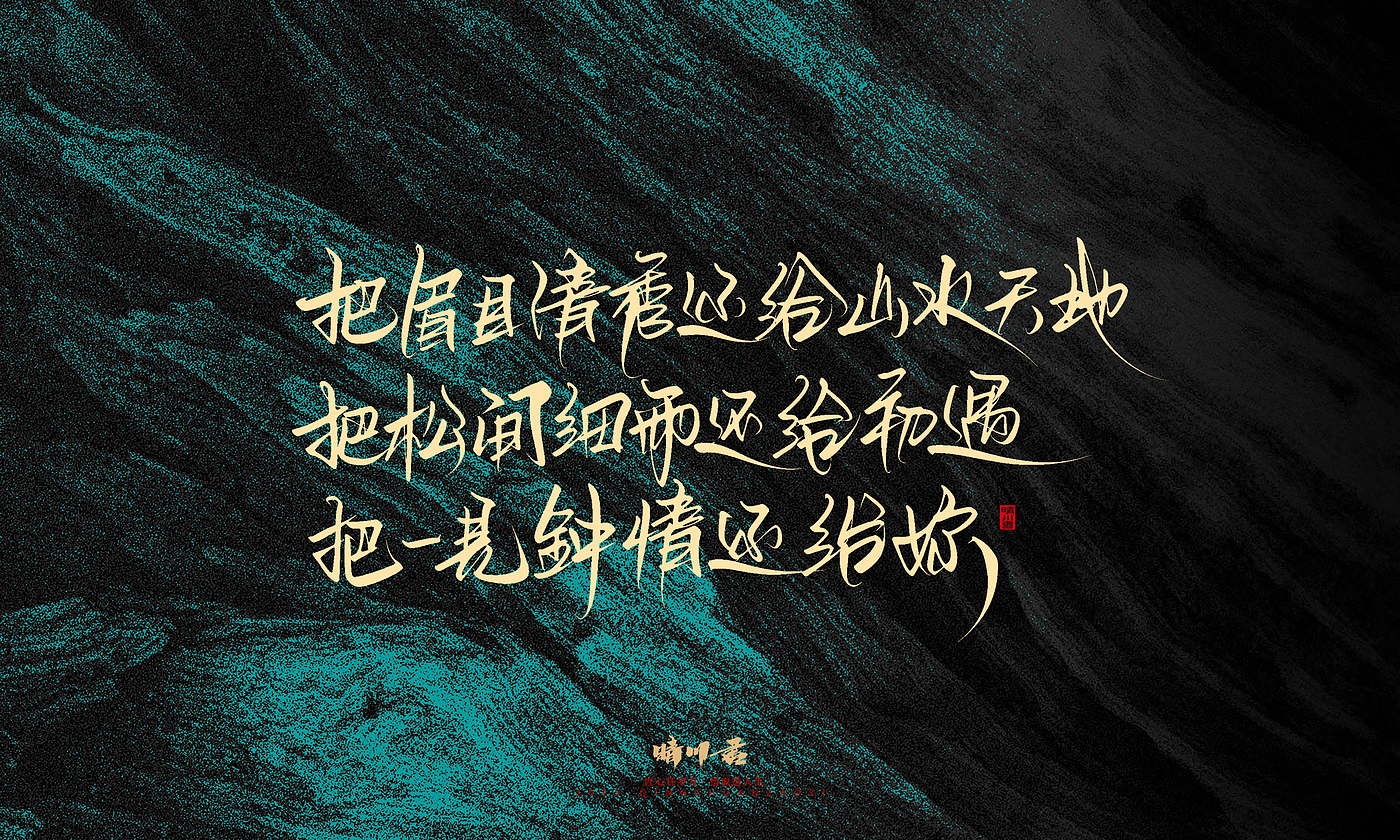 把眉目清秀还给山水天地
把松间细雨还给初遇
把一见钟情还给你
晴川书